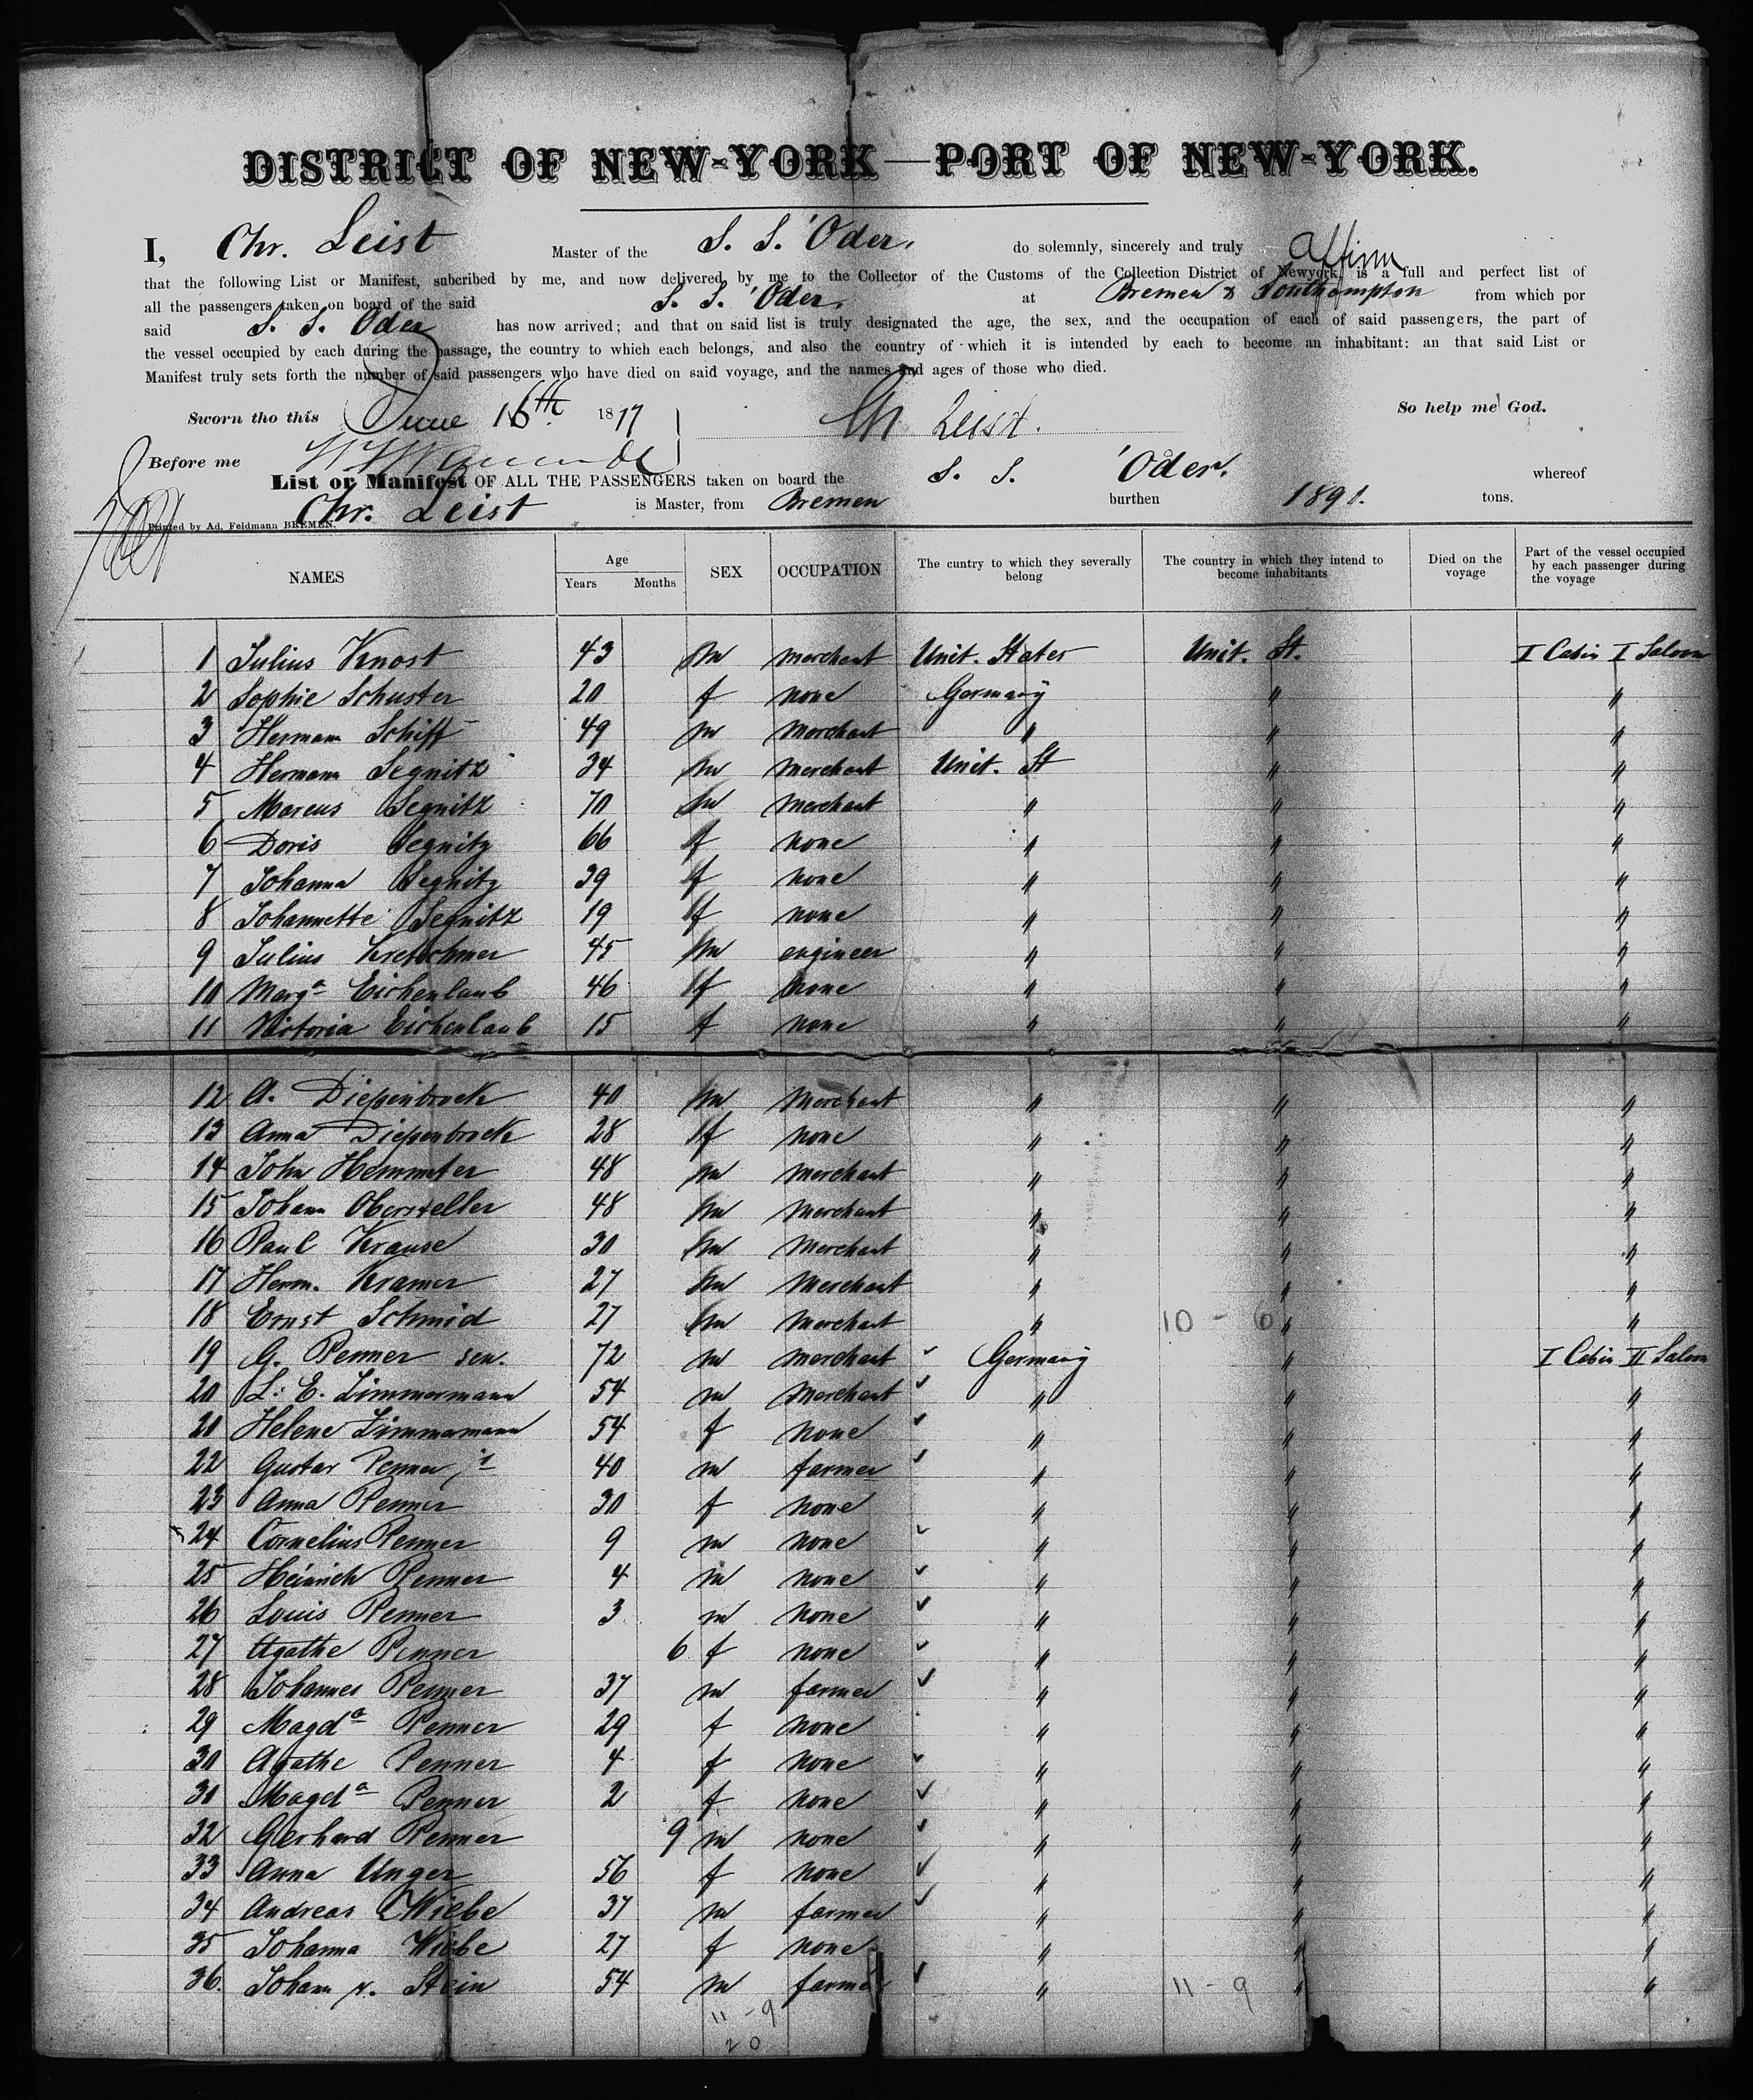 DISTRICT OF NEW-YORK — PORT OF NEW-YORK.
I, Chr. Leist Master of the S. S. 'Oder, do solemnly, sincerely and truly affirm
that the following List or Manifest, subcribed by me, and now delivered by me to the Collector of the Customs of the Collection District of Newyork, is a full and perfect list of
all the passengers taken on board of the said S. S. 'Oder, at Bremen & Southampton from which por
said S. S. Oder has now arrived; and that on said list is truly designated the age, the sex, and the occupation of each of said passengers, the part of
the vessel occupied by each during the passage, the country to which each belongs, and also the country of which it is intended by each to become an inhabitant: an that said List or
Manifest truly sets forth the number of said passengers who have died on said voyage, and the names and ages of those who died.
Sworn tho this June 16th 1877 Ch Leist. So help me God.
Before me
List or Manifest OF ALL THE PASSENGERS taken on board the S. S. 'Oder. whereof
Chr. Leist is Master, from Bremen burthen 1891. tons.
Printed by Ad. Feldmann BREMEN.
NAMES Age Years Months SEX OCCUPATION The cuntry to which they severally belong The country in which they intend to become inhabitants Died on the voyage Part of the vessel occupied by each passenger during the voyage
1 Julius Knost 43 m merchant Unit. States Unit. St. I Cabin I Saloon
2 Sophie Schuster 20 f none Germany " "
3 Hermann Schiff 49 m merchant " " "
4 Hermann Segnitz 34 m merchant Unit. St " "
5 Marcus Segnitz 70 m merchant " " "
6 Doris Segnitz 66 f none " " "
7 Johanna Segnitz 39 f none " " "
8 Johannette Segnitz 19 f none " " "
9 Julius Kretschmer 45 m engineer " " "
10 Marga Eichenlaub 46 f none " " "
11 Victoria Eichenlaub 15 f none " " "
12 A. Diepenbrock 40 m merchant " " "
13 Anna Diepenbrock 28 f none " " "
14 John Hemmeter 48 m merchant " " "
15 Johann Obersteller 48 m merchant " " "
16 Paul Krause 30 m merchant " " "
17 Herm. Kramer 27 m merchant " " "
18 Ernst Schmid 27 m merchant " 10 - 6 " "
19 G. Penner sen. 72 m merchant Germany " I Cabin II Saloon
20 L. E. Zimmermann 54 m merchant " " "
21 Helene Zimmermann 54 f none " " "
22 Gustav Penner jr 40 m farmer " " "
23 Anna Penner 30 f none " " "
24 Cornelius Penner 9 m none " " "
25 Heinrich Penner 4 m none " " "
26 Louis Penner 3 m none " " "
27 Agathe Penner 6 f none " " "
28 Johannes Penner 37 m farmer " " "
29 Magda Penner 29 f none " " "
30 Agathe Penner 4 f none " " "
31 Magda Penner 2 f none " " "
32 Gerhard Penner 9 m none " " "
33 Anna Unger 56 f none " " "
34 Andreas Wiebe 37 m farmer " " "
35 Johanna Wiebe 27 f none " " "
36. Johann v. Stein 54 m farmer " 11 - 9 " "
11 - 9
20